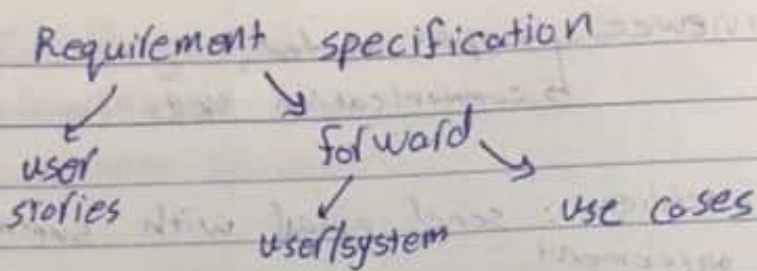 Requirement specification
user
stories
forward
user/system
use cases